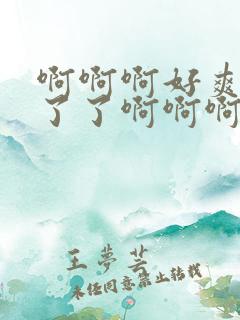 啊啊啊好爽
了了啊啊啊
王梦芸
未经同意禁止转载